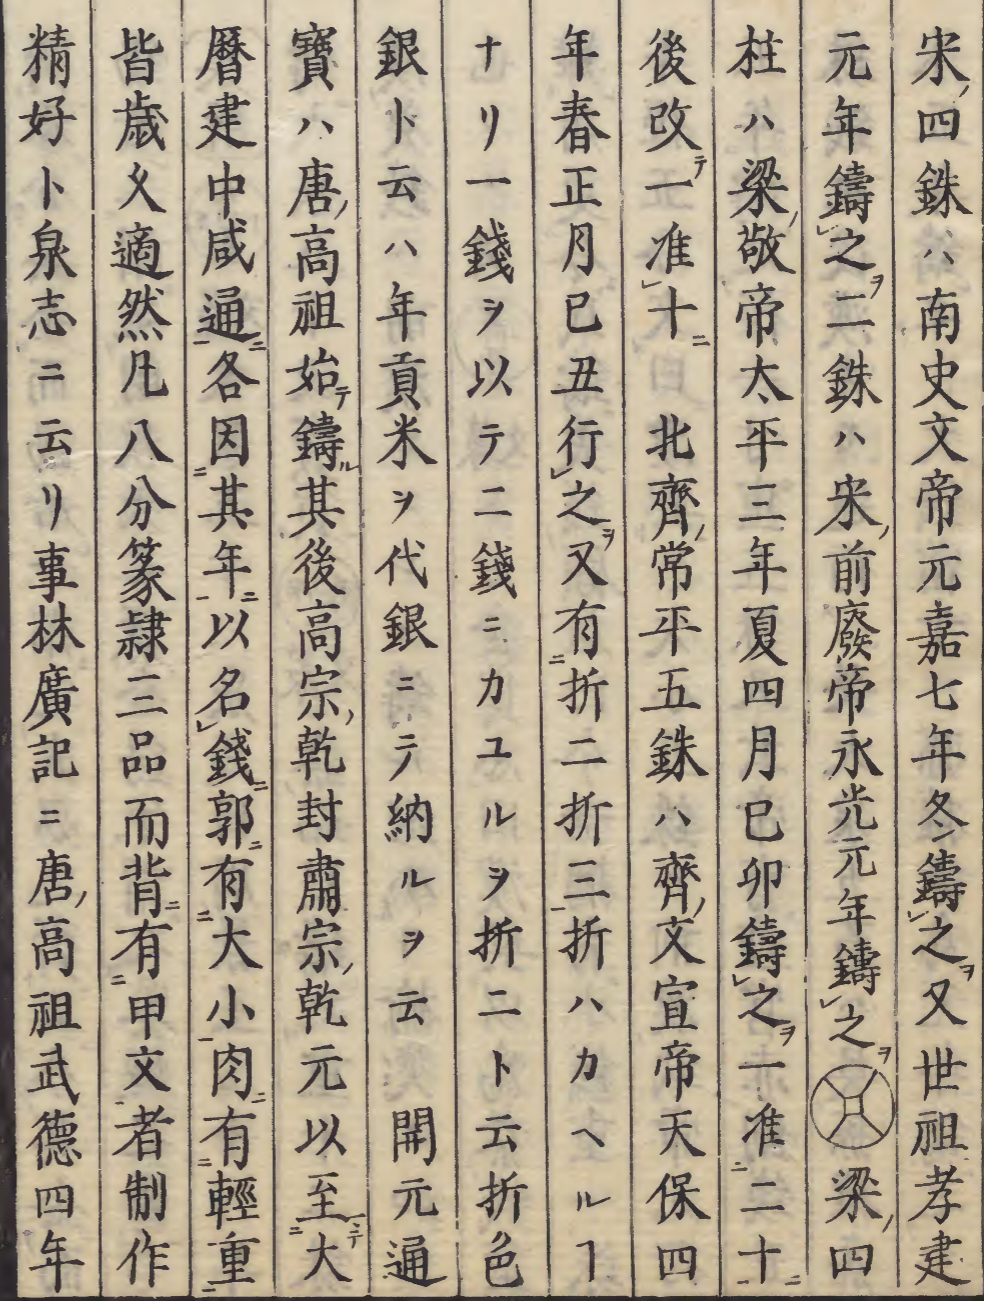 宋ノ四銖ハ南史文帝元嘉七年冬ン鑄レ之ヲ又世祖孝建
元年鑄レ之ヲ二銖ハ宋ノ前廢帝永光元年鑄レ之ヲ梁ノ四
柱ハ梁ノ敬帝太平三年夏四月巳卯鑄レ之ヲ一准二二十一ニ
後改テ一准レ十ニ北齊ノ常平五銖ハ齊ノ文宣帝天保四
年春正月巳丑行レ之ヲ又有二折二折三一折ハカヘルヿ
ナリ一錢ヲ以テ二錢ニカユルヲ折二ト云折色
銀ト云ハ年貢米ヲ代銀ニテ納ルヲ云開元通
寶ハ唐ノ高祖始テ鑄ル其後高宗ノ乾封肅宗ノ乾元以至二テ大
曆建中咸通一ニ各因二其年一ニ以名レ錢ニ郭ニ有二大小一肉ニ有二輕重一
皆歳乆適然凡八分篆隷三品而背ニ有二甲文一者制作
精好ト泉志ニ云リ事林廣記ニ唐ノ高祖武德四年